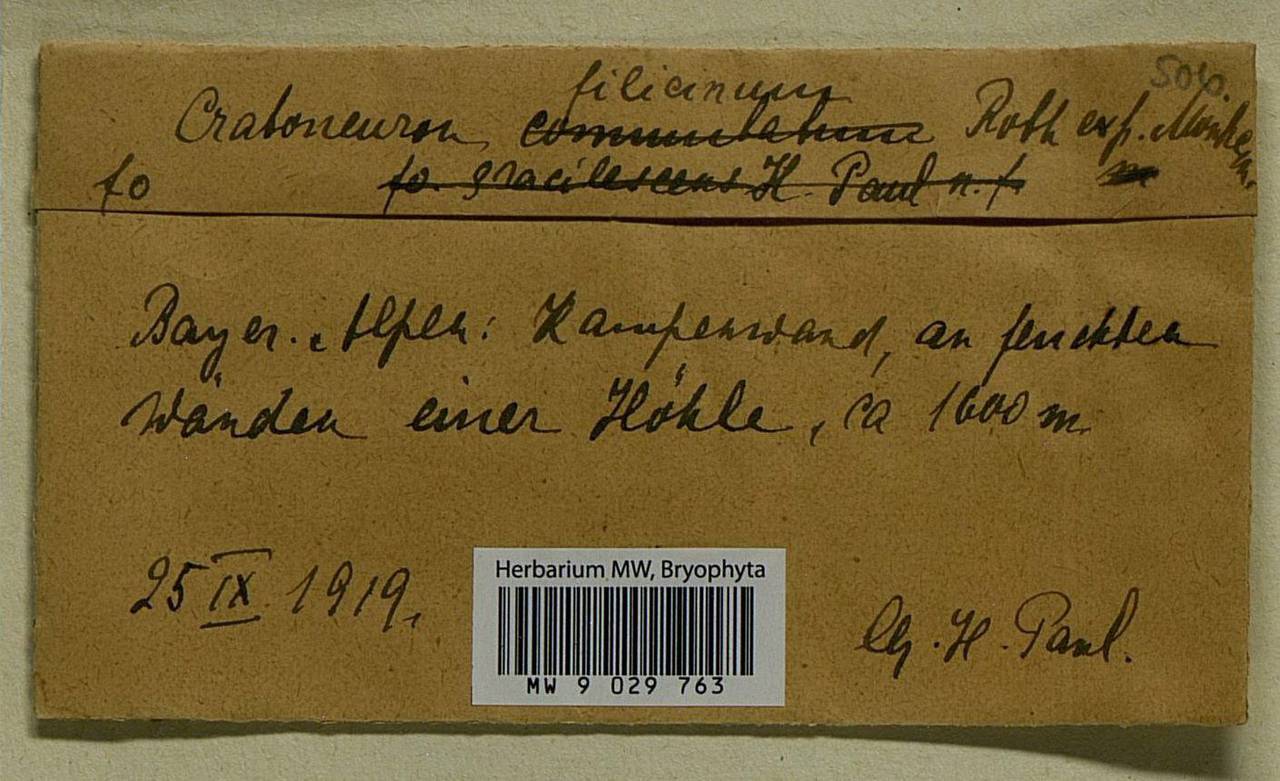 506.
filicinum
Cratoneuron commutatum Roth exp. Mönkem.
fo fo. gracilescens H. Paul n. f.
Bayer. Alpen: Kampenwand, an feuchten
Wänden einer Höhle, ca 1600 m.
25 IX 1919.
lg. H. Paul.
Herbarium MW, Bryophyta
MW 9 029 763